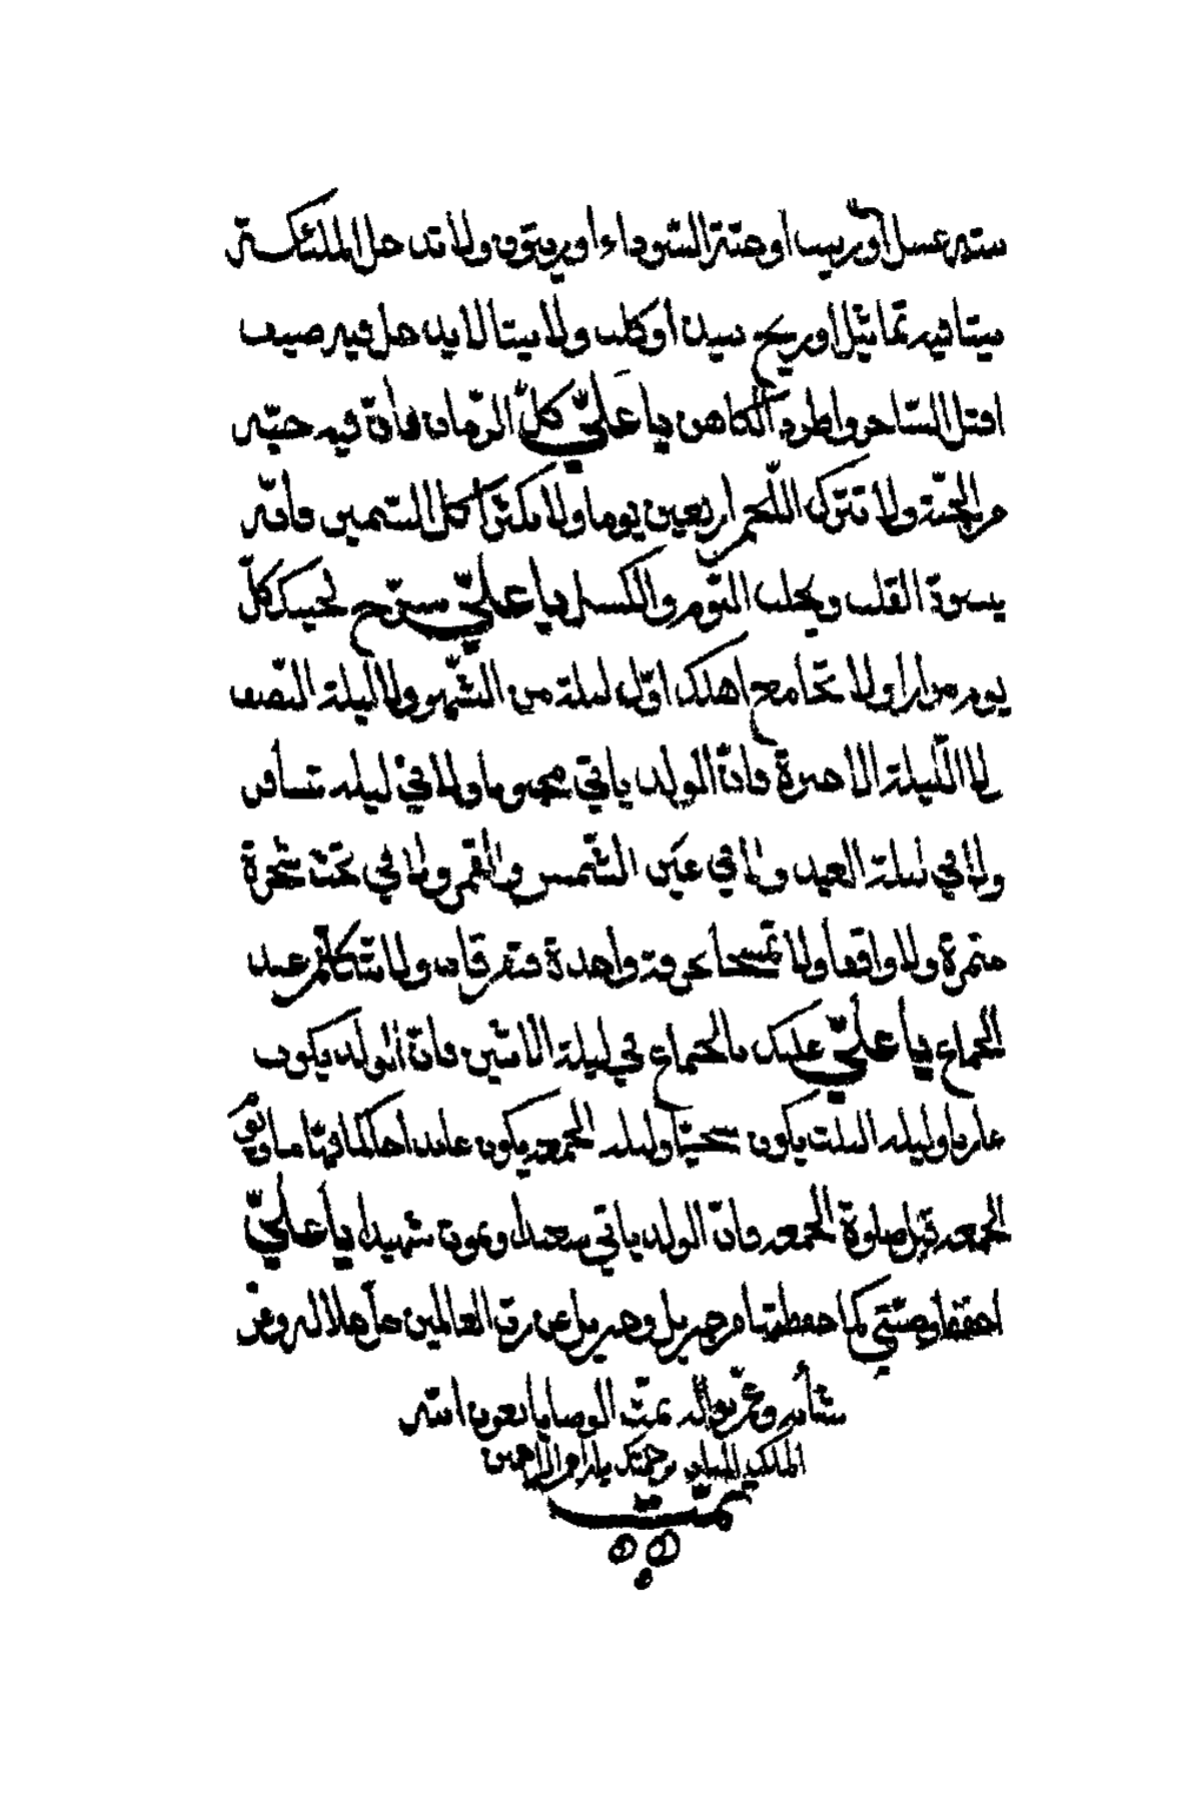 ستير عسل أو زبيب أو حبّة السّوداء أو زيتون ولا تدخل الملئكة
بيتا فيه تماثيل أو ريح أو كلب ولا بيتا لا يدخل فيه ضيف
اقتل السّاحر واطرد الكاهن يا عليّ كل الرّمان فأنّ فيه حبّه
من الجنّة ولا تترك اللّحم أربعين يوما ولا تكثر أكل السّمين فأنّه
يسود القلب ويجلب النّوم والكسل يا عليّ سرّح لحيتك كلّ
يوم مرارا ولا تجامع اهلك اوّل ليلة من الشّهر ولا ليلة النّصف
لا اللّيلة الاخيرة فأنّ الولد يأتي ولا في ليله تسافر
ولا في ليلة العيد ولا في عين الشّمس والقمر ولا في تحت شجرة
مثمرة ولا واقفا ولا تمسحا بخرقة واحدة فتفرقان ولا تتكلّم عند
الجماع يا عليّ عليك بالجماع في ليلة الاثنين فأنّ الولد يكون
وليله يكون سخيّا وليله الجمعه يكون عابدا
الجمعه قبل صلوة الجمعه فأنّ الولد يأتي سعيدا ويموت شهيدا يا عليّ
احفظ وصيّتي كما حفظتها من جبريل وجبريل عن ربّ العالمين جلّ جلاله وعزّ
شأنه تمّت الوصايا بعون اللّه
الملك برحمتك يا ارحم الراحمين
تمّت